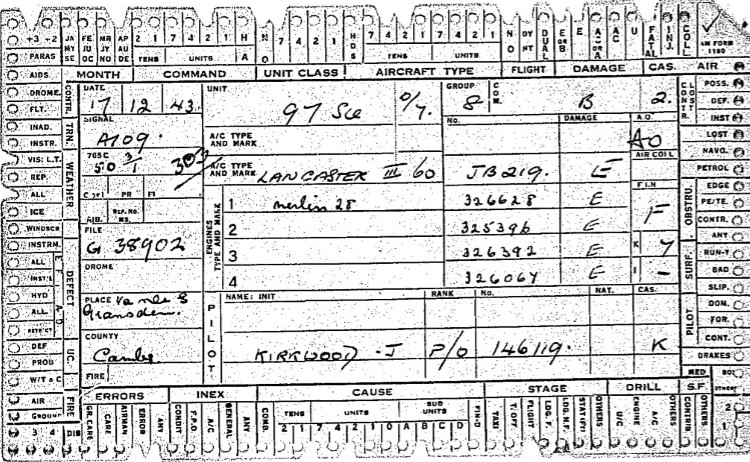 +3 +2 JA FE MR AP 2 1 7 4 2 1 H N 7 4 2 1 H 7 4 2 1 7 4 2 1 N DY DUAL E A U FATAL INJ. COLL
PARAS NY SE JU OC JY NO AU DE TENS UNITS A O D S TENS UNITS O NT AM FORM 1180
AIDS MONTH COMMAND UNIT CLASS AIRCRAFT TYPE FLIGHT DAMAGE CAS. AIR
DROME. CONTR. DATE UNIT GROUP COM. CONTR. LOST POSS.
FLT. 17 12 43. 97 Sq 8 B 2. DEF.
INAD. TRN. SIGNAL No. DAMAGE A.O. INST
INSTR. A709. A/C TYPE AND MARK AO LOST
VIS: L.T. WEATHER 765C AIR COLL NAVG.
REP. A/C TYPE AND MARK LANCASTER III 60 JB219. E PETROL
ALL PR FI F I N OBSTRU. EDGE
ICE 1 Merlin 28 326628 E F PE/TE.
WINDSCR FILE ENGINES TYPE AND MARK 2 325396 E CONTR.
INSTRN. G 38902 3 326392 E K 7 ANY
ALL DEFECT DROME 4 326064 E I - SURF. RUN-T
INST'S BAD
HYD PLACE NAME: INIT RANK No. NAT. CAS. SLIP.
ALL Gransden. PILOT PILOT DOM.
COUNTY FOR.
DEF UC. Cambs KIRKWOOD - J P/O 146119. K CONT.
PROU BRAKES
W/T & C FIRE MED
AIR FIRE ERRORS INEX CAUSE STAGE DRILL S.F.
GROUND GR. CARE CARE AIRMAN ERROR ANY CONDIT F.P.O A/C GENERAL ANY COMB. TENS UNITS SUB UNITS TAXI T/OFF FLIGHT LDG. F. LDG. N.F. OTHERS U/C ENGINE A/C OTHERS CONFIRM OTHERS 2
3 4 DIS 7 4 2 1 7 4 2 1 0 A B C D 1